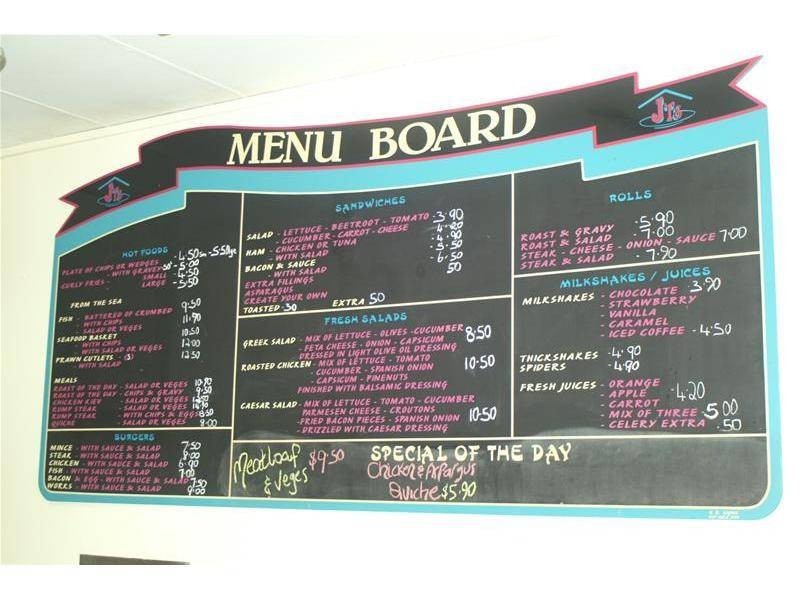 MENU BOARD
J.T's
HOT FOODS
PLATE OF CHIPS OR WEDGES - 4.50
- WITH GRAVY 50¢ - 5.00
CURLY FRIES - SMALL - 4.50
LARGE - 5.50
FROM THE SEA
FISH - BATTERED OR CRUMBED 9.50
- WITH CHIPS 11.90
- SALAD OR VEGES
SEAFOOD BASKET 10.50
- WITH CHIPS 12.00
- WITH SALAD OR VEGES
PRAWN CUTLETS 12.50
- WITH SALAD
MEALS
ROAST OF THE DAY - SALAD OR VEGES 10.90
ROAST OF THE DAY - CHIPS & GRAVY 9.50
CHICKEN KIEV - SALAD OR VEGES
RUMP STEAK - SALAD OR VEGES
RUMP STEAK - WITH CHIPS & EGGS
QUICHE - SALAD OR VEGES 8.00
BURGERS
MINCE - WITH SAUCE & SALAD 7.50
STEAK - WITH SAUCE & SALAD 8.00
CHICKEN - WITH SAUCE & SALAD 6.90
FISH - WITH SAUCE & SALAD 7.00
BACON & EGG - WITH SAUCE & SALAD 7.50
WORKS - WITH SAUCE & SALAD 9.00
SANDWICHES
SALAD - LETTUCE - BEETROOT - TOMATO - 3.90
- CUCUMBER - CARROT - CHEESE - 4.20
HAM - CHICKEN OR TUNA - 4.90
- WITH SALAD - 5.50
BACON & SAUCE
- WITH SALAD - 6.50
EXTRA FILLINGS 50
ASPARAGUS
CREATE YOUR OWN
TOASTED .30 EXTRA 50
FRESH SALADS
GREEK SALAD - MIX OF LETTUCE - OLIVES - CUCUMBER 8.50
- FETA CHEESE - ONION - CAPSICUM
DRESSED IN LIGHT OLIVE OIL DRESSING
ROASTED CHICKEN - MIX OF LETTUCE - TOMATO 10.50
- CUCUMBER - SPANISH ONION
- CAPSICUM - PINENUTS
FINISHED WITH BALSAMIC DRESSING
CAESAR SALAD - MIX OF LETTUCE - TOMATO - CUCUMBER
PARMESEN CHEESE - CROUTONS
- FRIED BACON PIECES - SPANISH ONION 10.50
- DRIZZLED WITH CAESAR DRESSING
ROLLS
- 5.90
ROAST & GRAVY
ROAST & SALAD 7.00
STEAK - CHEESE - ONION - SAUCE 7.00
STEAK & SALAD - 7.90
MILKSHAKES / JUICES
MILKSHAKES - CHOCOLATE - 3.90
- STRAWBERRY
- VANILLA
- CARAMEL
- ICED COFFEE - 4.50
THICKSHAKES - 4.90
SPIDERS - 4.90
FRESH JUICES - ORANGE
- APPLE - 4.20
- CARROT
- MIX OF THREE - 5.00
- CELERY EXTRA .50
SPECIAL OF THE DAY
Meatloaf & Veges $9.50
Chicken & Asparagus
Quiche $5.90